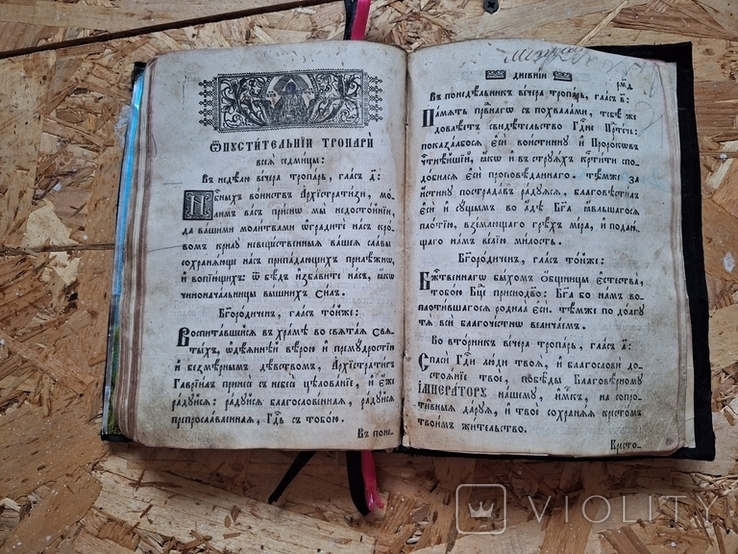 Ѿпустителнїи тропари
всеѧ̀ седмицы:
Въ недѣлю вечера тропарь, гласъ д҃:
Нбⷭ҇ныхъ воинствъ Архїстратизи, мо-
лимъ васъ приснѡ мы недостойнїи,
да вашими молитвами ѡградите насъ кро-
вомъ крилу невещественныѧ вашеѧ славы
сохранѧюще насъ припадающихъ прилѣжнѡ,
и вопїющихъ: ѿ бѣдъ избавите насъ, ꙗкѡ
чиноначалницы вышнихъ силъ.
Бг҃ородиченъ, гласъ тойже:
Воспитавшейсѧ въ храмѣ во свѧтаѧ свѧ-
тыхъ, ѡдѣѧннѣй вѣрою и премꙋдростїю
и безмѣрнымъ дѣвствомъ, Архїстратигъ
Гаврїилъ принесе съ небесе цѣлованїе, и еже
радꙋйсѧ: радꙋйсѧ благословеннаѧ, радꙋйсѧ
препрославленнаѧ, Гдⷭ҇ь съ тобою.
Въ поне-
дневнїи
рмд
Въ понедѣльникъ вечера тропарь, гласъ в҃:
Памѧть праведнагѡ съ похвалами, тебѣ же
довлѣетъ свидѣтельство Гдⷭ҇не Прⷣтече:
показалбосѧ еси воистинну и Пророкѡвъ
честнѣйшїй, ꙗкѡ и въ стрꙋѧхъ крⷭ҇тити спо-
добилсѧ еси проповѣданнаго. тѣмже за
истинꙋ пострадавъ радꙋѧсѧ, благовѣстилъ
еси и сꙋщымъ во адѣ Бг҃а ꙗвльшагосѧ
плотїю, вземлющаго грѣхъ мїра, и подаю-
щаго намъ велїю милость.
Бг҃ородиченъ, гласъ тойже:
Божественнагѡ быхомъ ѻбщницы естества,
тобою Бцⷣе приснодв҃о: Бг҃а бо намъ во-
плотившагосѧ родила еси. тѣмже по долгꙋ
тѧ вси благочестнѡ величаемъ.
Во вторникъ вечера тропарь, гласъ д҃:
Спаси Гдⷭ҇и люди твоѧ, и благослови до-
стоѧнїе твое, побѣды благовѣрномꙋ
ИМПЕРАТОРꙊ нашемꙋ, имⷬ҇къ, на сопро-
тивныѧ дарꙋѧ, и твое сохранѧѧ крестомъ
твоимъ жительство.
Кресто-
VIOLITY